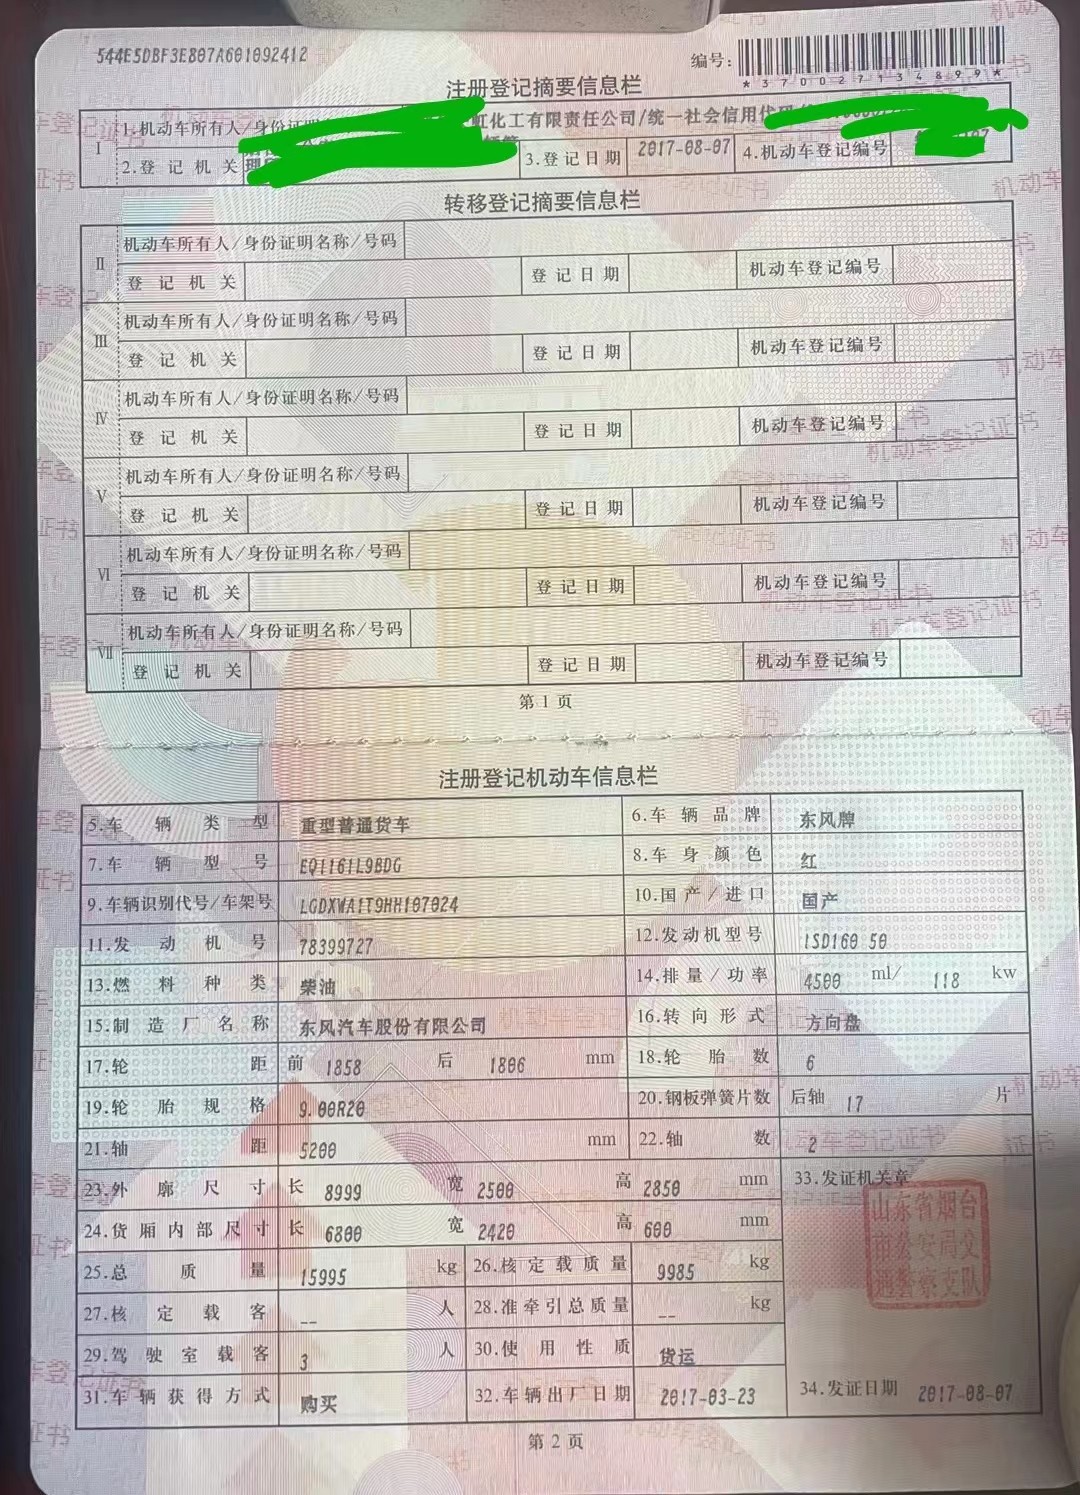 544E5DBF3E807A601092412
编号:
*370027134899*
注册登记摘要信息栏
I 1.机动车所有人/身份证明 虹化工有限责任公司/统一社会信用代码
2.登记机关 3.登记日期 2017-08-07 4.机动车登记编号
转移登记摘要信息栏
II 机动车所有人/身份证明名称/号码
登记机关 登记日期 机动车登记编号
III 机动车所有人/身份证明名称/号码
登记机关 登记日期 机动车登记编号
IV 机动车所有人/身份证明名称/号码
登记机关 登记日期 机动车登记编号
V 机动车所有人/身份证明名称/号码
登记机关 登记日期 机动车登记编号
VI 机动车所有人/身份证明名称/号码
登记机关 登记日期 机动车登记编号
VII 机动车所有人/身份证明名称/号码
登记机关 登记日期 机动车登记编号
第1页
注册登记机动车信息栏
5.车辆类型 重型普通货车 6.车辆品牌 东风牌
7.车辆型号 EQ1161L9BDG 8.车身颜色 红
9.车辆识别代号/车架号 LGDXWA1T9HH107024 10.国产/进口 国产
11.发动机号 78399727 12.发动机型号 ISD160 50
13.燃料种类 柴油 14.排量/功率 4500 ml/ 118 kw
15.制造厂名称 东风汽车股份有限公司 16.转向形式 方向盘
17.轮距 前 1858 后 1806 mm 18.轮胎数 6
19.轮胎规格 9.00R20 20.钢板弹簧片数 后轴 17 片
21.轴距 5200 mm 22.轴数 2
23.外廓尺寸 长 8999 宽 2500 高 2850 mm 33.发证机关章
24.货厢内部尺寸 长 6800 宽 2420 高 600 mm
山东省烟台
市公安局交
通警察支队
25.总质量 15995 kg 26.核定载质量 9985 kg
27.核定载客 -- 人 28.准牵引总质量 -- kg
29.驾驶室载客 3 人 30.使用性质 货运
31.车辆获得方式 购买 32.车辆出厂日期 2017-03-23 34.发证日期 2017-08-07
第2页